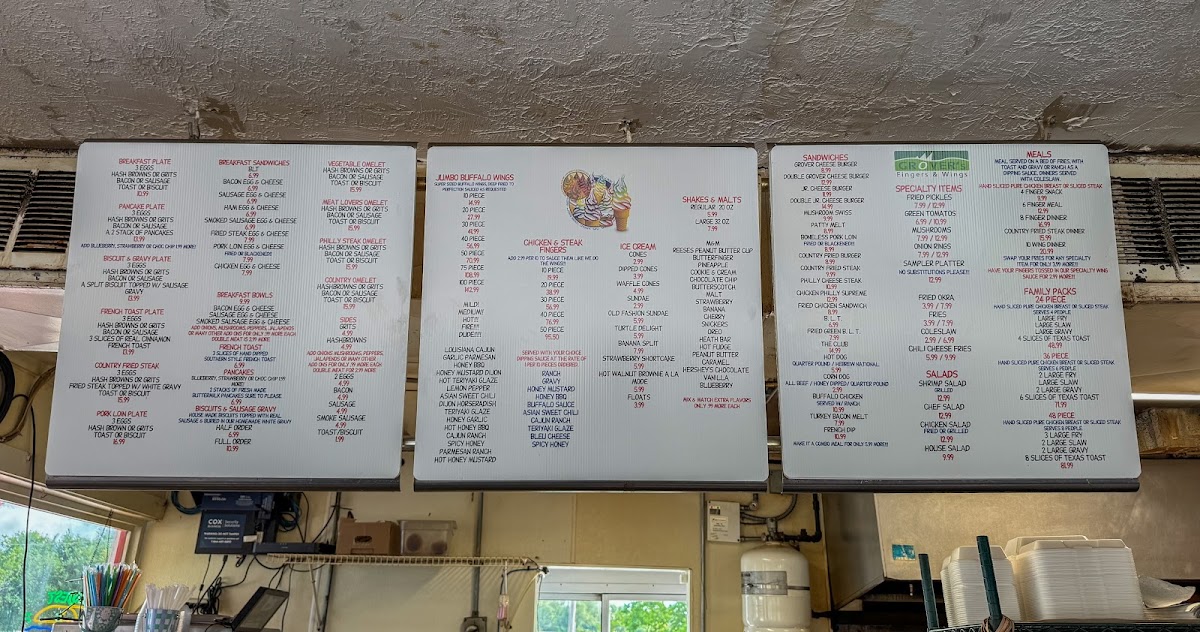 BREAKFAST PLATE
3 EGGS
HASH BROWNS OR GRITS
BACON OR SAUSAGE
TOAST OR BISCUIT
10.99
PANCAKE PLATE
3 EGGS
HASH BROWNS OR GRITS
BACON OR SAUSAGE
A 2 STACK OF PANCAKES
13.99
ADD BLUEBERRY, STRAWBERRY OR CHOC CHIP 1.99 MORE!
BISCUIT & GRAVY PLATE
3 EGGS
HASH BROWNS OR GRITS
BACON OR SAUSAGE
A SPLIT BISCUIT TOPPED W/ SAUSAGE
GRAVY
13.99
FRENCH TOAST PLATE
3 EGGS
HASH BROWNS OR GRITS
BACON OR SAUSAGE
3 SLICES OF REAL CINNAMON
FRENCH TOAST
13.99
COUNTRY FRIED STEAK
3 EGGS
HASH BROWNS OR GRITS
FRIED STEAK TOPPED W/ WHITE GRAVY
TOAST OR BISCUIT
15.99
PORK LOIN PLATE
3 EGGS
HASH BROWN OR GRITS
TOAST OR BISCUIT
16.99
BREAKFAST SANDWICHES
BLT
6.99
BACON EGG & CHEESE
7.99
SAUSAGE EGG & CHEESE
6.99
HAM EGG & CHEESE
6.99
SMOKED SAUSAGE EGG & CHEESE
6.99
FRIED STEAK EGG & CHEESE
7.99
PORK LOIN EGG & CHEESE
FRIED OR BLACKENED!
7.99
CHICKEN EGG & CHEESE
7.99
BREAKFAST BOWLS
9.99
BACON EGG & CHEESE
SAUSAGE EGG & CHEESE
SMOKED SAUSAGE EGG & CHEESE
ADD ONIONS, MUSHROOMS, PEPPERS, JALAPENOS
OR MANY OTHER ADD ONS FOR ONLY .99 MORE EACH
DOUBLE MEAT IS 2.99 MORE
FRENCH TOAST
3 SLICES OF HAND DIPPED
SOUTHERN STYLE FRENCH TOAST
6.99
PANCAKES
BLUEBERRY, STRAWBERRY OR CHOC CHIP 1.99
MORE!
3 STACKS OF FRESH MADE
BUTTERMILK PANCAKES SURE TO PLEASE
6.99
BISCUITS & SAUSAGE GRAVY
HOUSE MADE BISCUITS TOPPED WITH REAL
SAUSAGE & BURIED IN OUR HOMEMADE WHITE GRAVY
HALF ORDER
6.99
FULL ORDER
10.99
VEGETABLE OMELET
HASH BROWNS OR GRITS
BACON OR SAUSAGE
TOAST OR BISCUIT
15.99
MEAT LOVERS OMELET
HASH BROWNS OR GRITS
BACON OR SAUSAGE
TOAST OR BISCUIT
15.99
PHILLY STEAK OMELET
HASH BROWNS OR GRITS
BACON OR SAUSAGE
TOAST OR BISCUIT
15.99
COUNTRY OMELET
HASH BROWNS OR GRITS
BACON OR SAUSAGE
TOAST OR BISCUIT
15.99
SIDES
GRITS
4.99
HASHBROWNS
4.99
ADD ONIONS MUSHROOMS, PEPPERS,
JALAPENOS OR MANY OTHER
ADD ONS FOR ONLY .99 MORE EACH
DOUBLE MEAT FOR 2.99
2 EGGS
4.99
BACON
4.99
SAUSAGE
4.99
SMOKE SAUSAGE
4.99
TOAST/BISCUIT
1.99
JUMBO BUFFALO WINGS
SUPER SIZED BUFFALO WINGS, DEEP FRIED TO
PERFECTION SAUCED AS REQUESTED
10 PIECE
14.99
20 PIECE
27.99
30 PIECE
41.99
40 PIECE
56.99
50 PIECE
70.99
75 PIECE
108.99
100 PIECE
142.99
MILD!
MEDIUM!
HOT!!
FIRE!!!
DUDE!!!!
LOUISIANA CAJUN
GARLIC PARMESAN
HONEY BBQ
HONEY MUSTARD DIJON
HOT TERIYAKI GLAZE
LEMON PEPPER
ASIAN SWEET CHILI
DIJON HORSERADISH
TERIYAKI GLAZE
HONEY GARLIC
HOT HONEY BBQ
CAJUN RANCH
SPICY HONEY
PARMESAN RANCH
HOT HONEY MUSTARD
CHICKEN & STEAK
FINGERS
ADD 2.99 PER 10 TO SAUCE THEM LIKE WE DO
THE WINGS!!
10 PIECE
19.99
20 PIECE
38.99
30 PIECE
56.99
40 PIECE
76.99
50 PIECE
95.50
SERVED WITH YOUR CHOICE
DIPPING SAUCE AT THE RATE OF
1 PER 10 PIECES ORDERED
RANCH
GRAVY
HONEY MUSTARD
HONEY BBQ
BUFFALO SAUCE
ASIAN SWEET CHILI
CAJUN RANCH
TERIYAKI GLAZE
BLEU CHEESE
SPICY HONEY
ICE CREAM
CONES
2.99
DIPPED CONES
3.99
WAFFLE CONES
4.99
SUNDAE
2.99
OLD FASHION SUNDAE
5.99
TURTLE DELIGHT
5.99
BANANA SPLIT
7.99
STRAWBERRY SHORTCAKE
5.99
HOT WALNUT BROWNIE A LA
MODE
5.99
FLOATS
3.99
SHAKES & MALTS
REGULAR 20 OZ
5.99
LARGE 32 OZ
7.99
M&M
REESE'S PEANUT BUTTER CUP
BUTTERFINGER
PINEAPPLE
COOKIE & CREAM
CHOCOLATE CHIP
BUTTERSCOTCH
MALT
STRAWBERRY
BANANA
CHERRY
SNICKERS
OREO
HEATH BAR
HOT FUDGE
PEANUT BUTTER
CARAMEL
HERSHEY'S CHOCOLATE
VANILLA
BLUEBERRY
MIX & MATCH EXTRA FLAVORS
ONLY .99 MORE EACH
SANDWICHES
GROVER CHEESE BURGER
8.99
DOUBLE GROVER CHEESE BURGER
12.99
JR. CHEESE BURGER
8.99
DOUBLE JR. CHEESE BURGER
14.99
MUSHROOM SWISS
9.99
PATTY MELT
8.99
BONELESS PORK LOIN
FRIED OR BLACKENED!!
8.99
COUNTRY FRIED BURGER
8.99
COUNTRY FRIED STEAK
7.99
PHILLY CHEESE STEAK
10.99
CHICKEN PHILLY SUPREME
12.99
FRIED CHICKEN SANDWICH
8.99
B. L. T.
6.99
FRIED GREEN B. L. T.
7.99
THE CLUB
14.99
HOT DOG
QUARTER POUND / HEBREW NATIONAL
5.99
CORN DOG
ALL BEEF / HONEY DIPPED/ QUARTER POUND
2.99
BUFFALO CHICKEN
SERVED W/ RANCH
10.99
TURKEY BACON MELT
7.99
FRENCH DIP
10.99
MAKE IT A COMBO MEAL FOR ONLY 5.99 MORE!!
GROVER'S
Fingers & Wings
SPECIALTY ITEMS
FRIED PICKLES
7.99 / 12.99
GREEN TOMATOS
6.99 / 10.99
MUSHROOMS
7.99 / 12.99
ONION RINGS
7.99 / 12.99
SAMPLER PLATTER
NO SUBSTITUTIONS PLEASE!!!
12.99
FRIED OKRA
3.99 / 7.99
FRIES
3.99 / 7.99
COLESLAW
2.99 / 6.99
CHILI CHEESE FRIES
5.99 / 9.99
SALADS
SHRIMP SALAD
GRILLED
12.99
CHEF SALAD
12.99
CHICKEN SALAD
FRIED OR GRILLED
12.99
HOUSE SALAD
9.99
MEALS
MEAL SERVED ON A BED OF FRIES, WITH
TOAST AND GRAVY OR RANCH AS A
DIPPING SAUCE, DINNERS SERVED
WITH COLESLAW
HAND SLICED PURE CHICKEN BREAST OR SLICED STEAK
4 FINGER SNACK
9.99
6 FINGER MEAL
12.99
8 FINGER DINNER
16.99
COUNTRY FRIED DINNER
15.99
10 WING DINNER
20.99
SWAP YOUR FRIES FOR ANY SPECIALTY
ITEM FOR ONLY 3.99 MORE!!
HAVE YOUR FINGERS TOSSED IN OUR SPECIALTY WING
SAUCE FOR 2.99 MORE!!
FAMILY PACKS
24 PIECE
HAND SLICED PURE CHICKEN BREAST OR SLICED STEAK
SERVES 4 PEOPLE
LARGE FRY
LARGE SLAW
LARGE GRAVY
4 SLICES OF TEXAS TOAST
48.99
36 PIECE
HAND SLICED PURE CHICKEN BREAST OR SLICED STEAK
SERVES 6 PEOPLE
2 LARGE FRY
LARGE SLAW
2 LARGE GRAVY
6 SLICES OF TEXAS TOAST
71.99
48 PIECE
HAND SLICED PURE CHICKEN BREAST OR SLICED STEAK
SERVES 8 PEOPLE
3 LARGE FRY
2 LARGE SLAW
2 LARGE GRAVY
8 SLICES OF TEXAS TOAST
81.99
COX